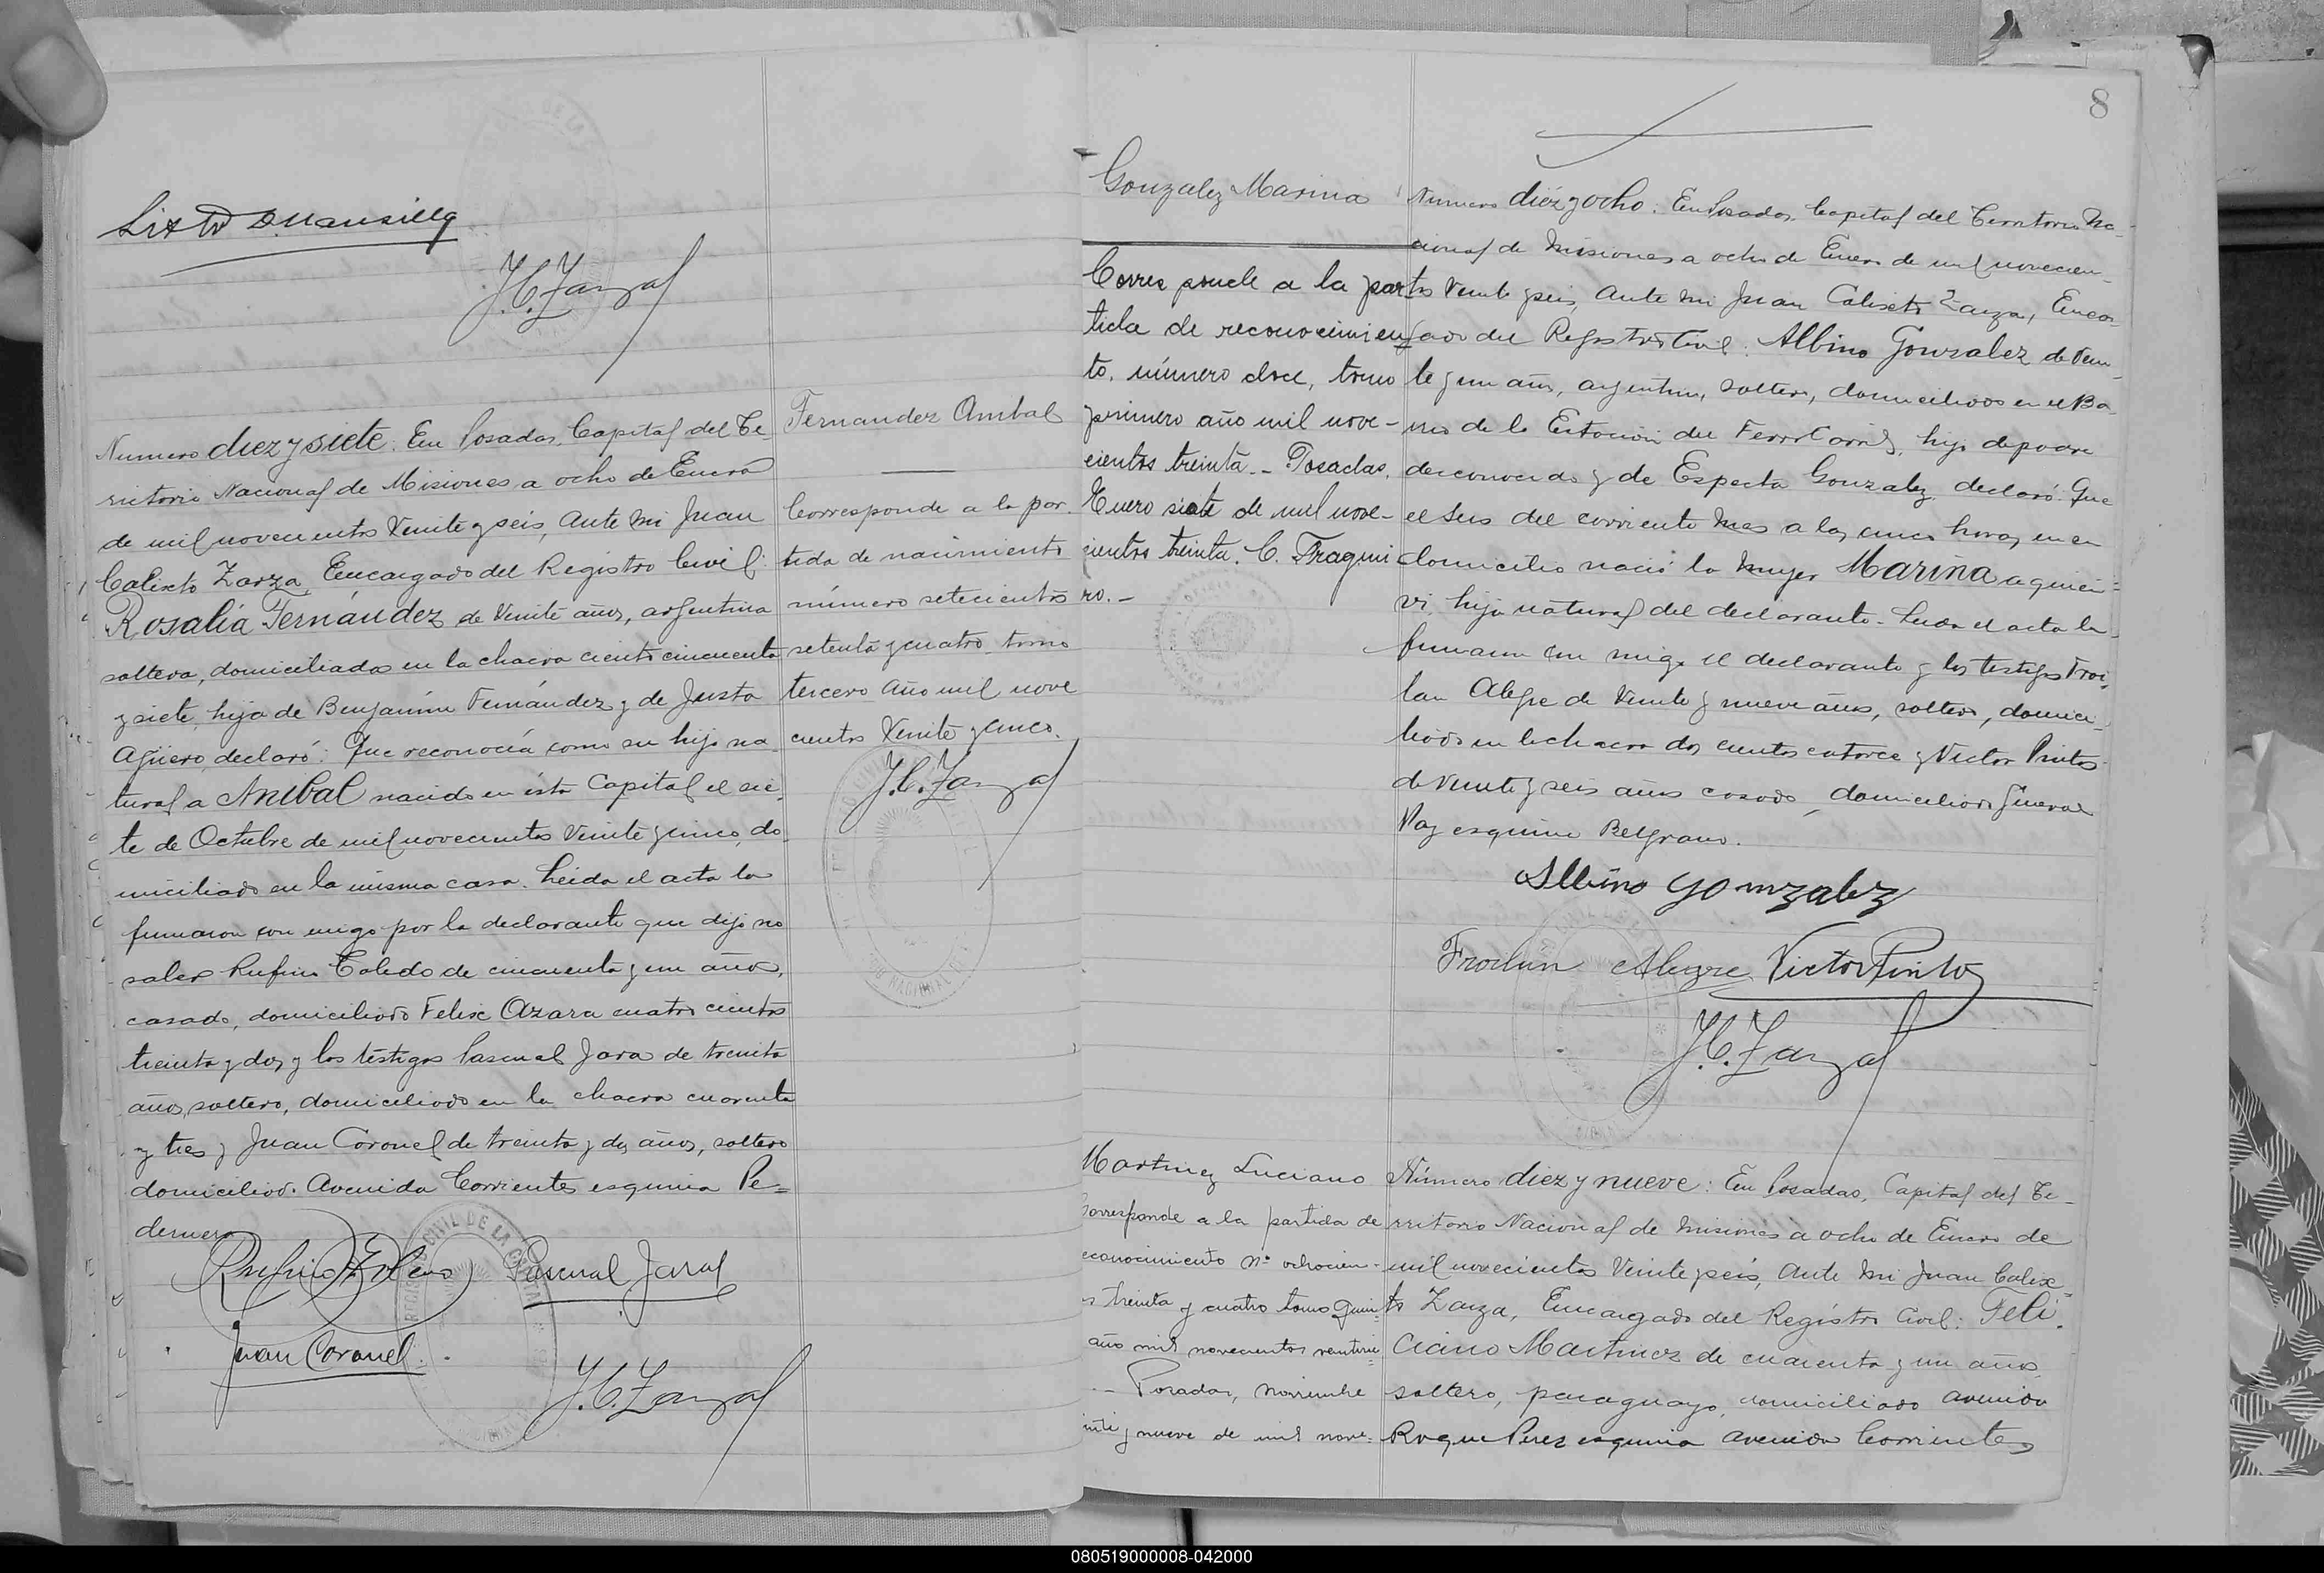 Sixto Mansilla
J.C. Zarza
Numero diez y siete: En Posadas, Capital del Te
rritorio Nacional de Misiones a ocho de Enero
de mil novecientos Veinte y seis, Ante mi Juan
Calixto Zarza, Encargado del Registro Civil:
Rosalía Fernández de Veinte años, argentina
soltera, domiciliada en la chacra ciento cincuenta
y siete, hija de Benjamin Fernández y de Justa
Agüero, declaró: Que reconocía como su hijo na
tural a Anibal nacido en ésta Capital el sie
te de Octubre de mil novecientos Veinte y cinco, do
miciliado en la misma casa. Leida el acta la
firmaron con migo por la declarante que dijo no
saber Rufino Toledo de cincuenta y un años,
casado, domiciliado Felix Azara cuatro cientos
treinta y dos y los testigos Pascual Jara de treinta
años, soltero, domiciliado en la chacra cuarenta
y tres y Juan Coronel de treinta y dos años, soltero
domiciliado Avenida Corrientes esquina Pe=
dernera
Rufino Toledo Pascual Jara
Juan Coronel
J.C. Zarza
Fernandez Anibal
Corresponde a la par
tida de nacimiento
número setecientos
setenta y cuatro tomo
tercero año mil nove
cientos Veinte y cinco.
J.C. Zarza
REGISTRO CIVIL DE LA CAPITAL
8
Gonzalez Marina
Corresponde a la par
tida de reconocimien
to, número doce, tomo
primero año mil nove-
cientos treinta. - Posadas,
Enero siete de mil nove-
cientos treinta. C. Fragui
ro. -
Numero diez y ocho: En Posadas, Capital del Territorio Na-
cional de Misiones a ocho de Enero de mil novecien
tos Veinte y seis, Ante mi Juan Calixto Zarza, Encar
gado del Registro Civil: Albino Gonzalez de Vein
te y un años, argentino, soltero, domiciliado en el Ba
rrio de la Estación del Ferro Carril, hijo de padre
desconocido y de Especta Gonzalez, declaró: Que
el seis del corriente mes a las cinco horas, en su
domicilio nació la mujer Marina a quien
vi, hija natural del declarante. Leida el acta la
firmaron con migo el declarante y los testigos Froi
lan Alegre de Veinte y nueve años, soltero, domici
liado en la chacra dos cientos catorce y Victor Pintos
de Veinte y seis años casado, domiciliado General
Paz esquina Belgrano.
Albino Gonzalez
Froilan Alegre Victor Pinto
J.C. Zarza
Martinez Luciano
Corresponde a la partida de
econocimiento Nº ochocien-
s treinta y cuatro tomo Quin
año mil novecientos veinti
- Posadas, noviembre
inte y nueve de mil nove
Número diez y nueve: En Posadas, Capital del Te-
rritorio Nacional de Misiones a ocho de Enero de
mil novecientos Veinte y seis, Ante mi Juan Calix
to Zarza, Encargado del Registro Civil: Feli
ciano Martinez de cuarenta y un años
soltero, paraguayo, domiciliado avenida
Roque Perez esquina avenida Corrientes
080519000008-042000